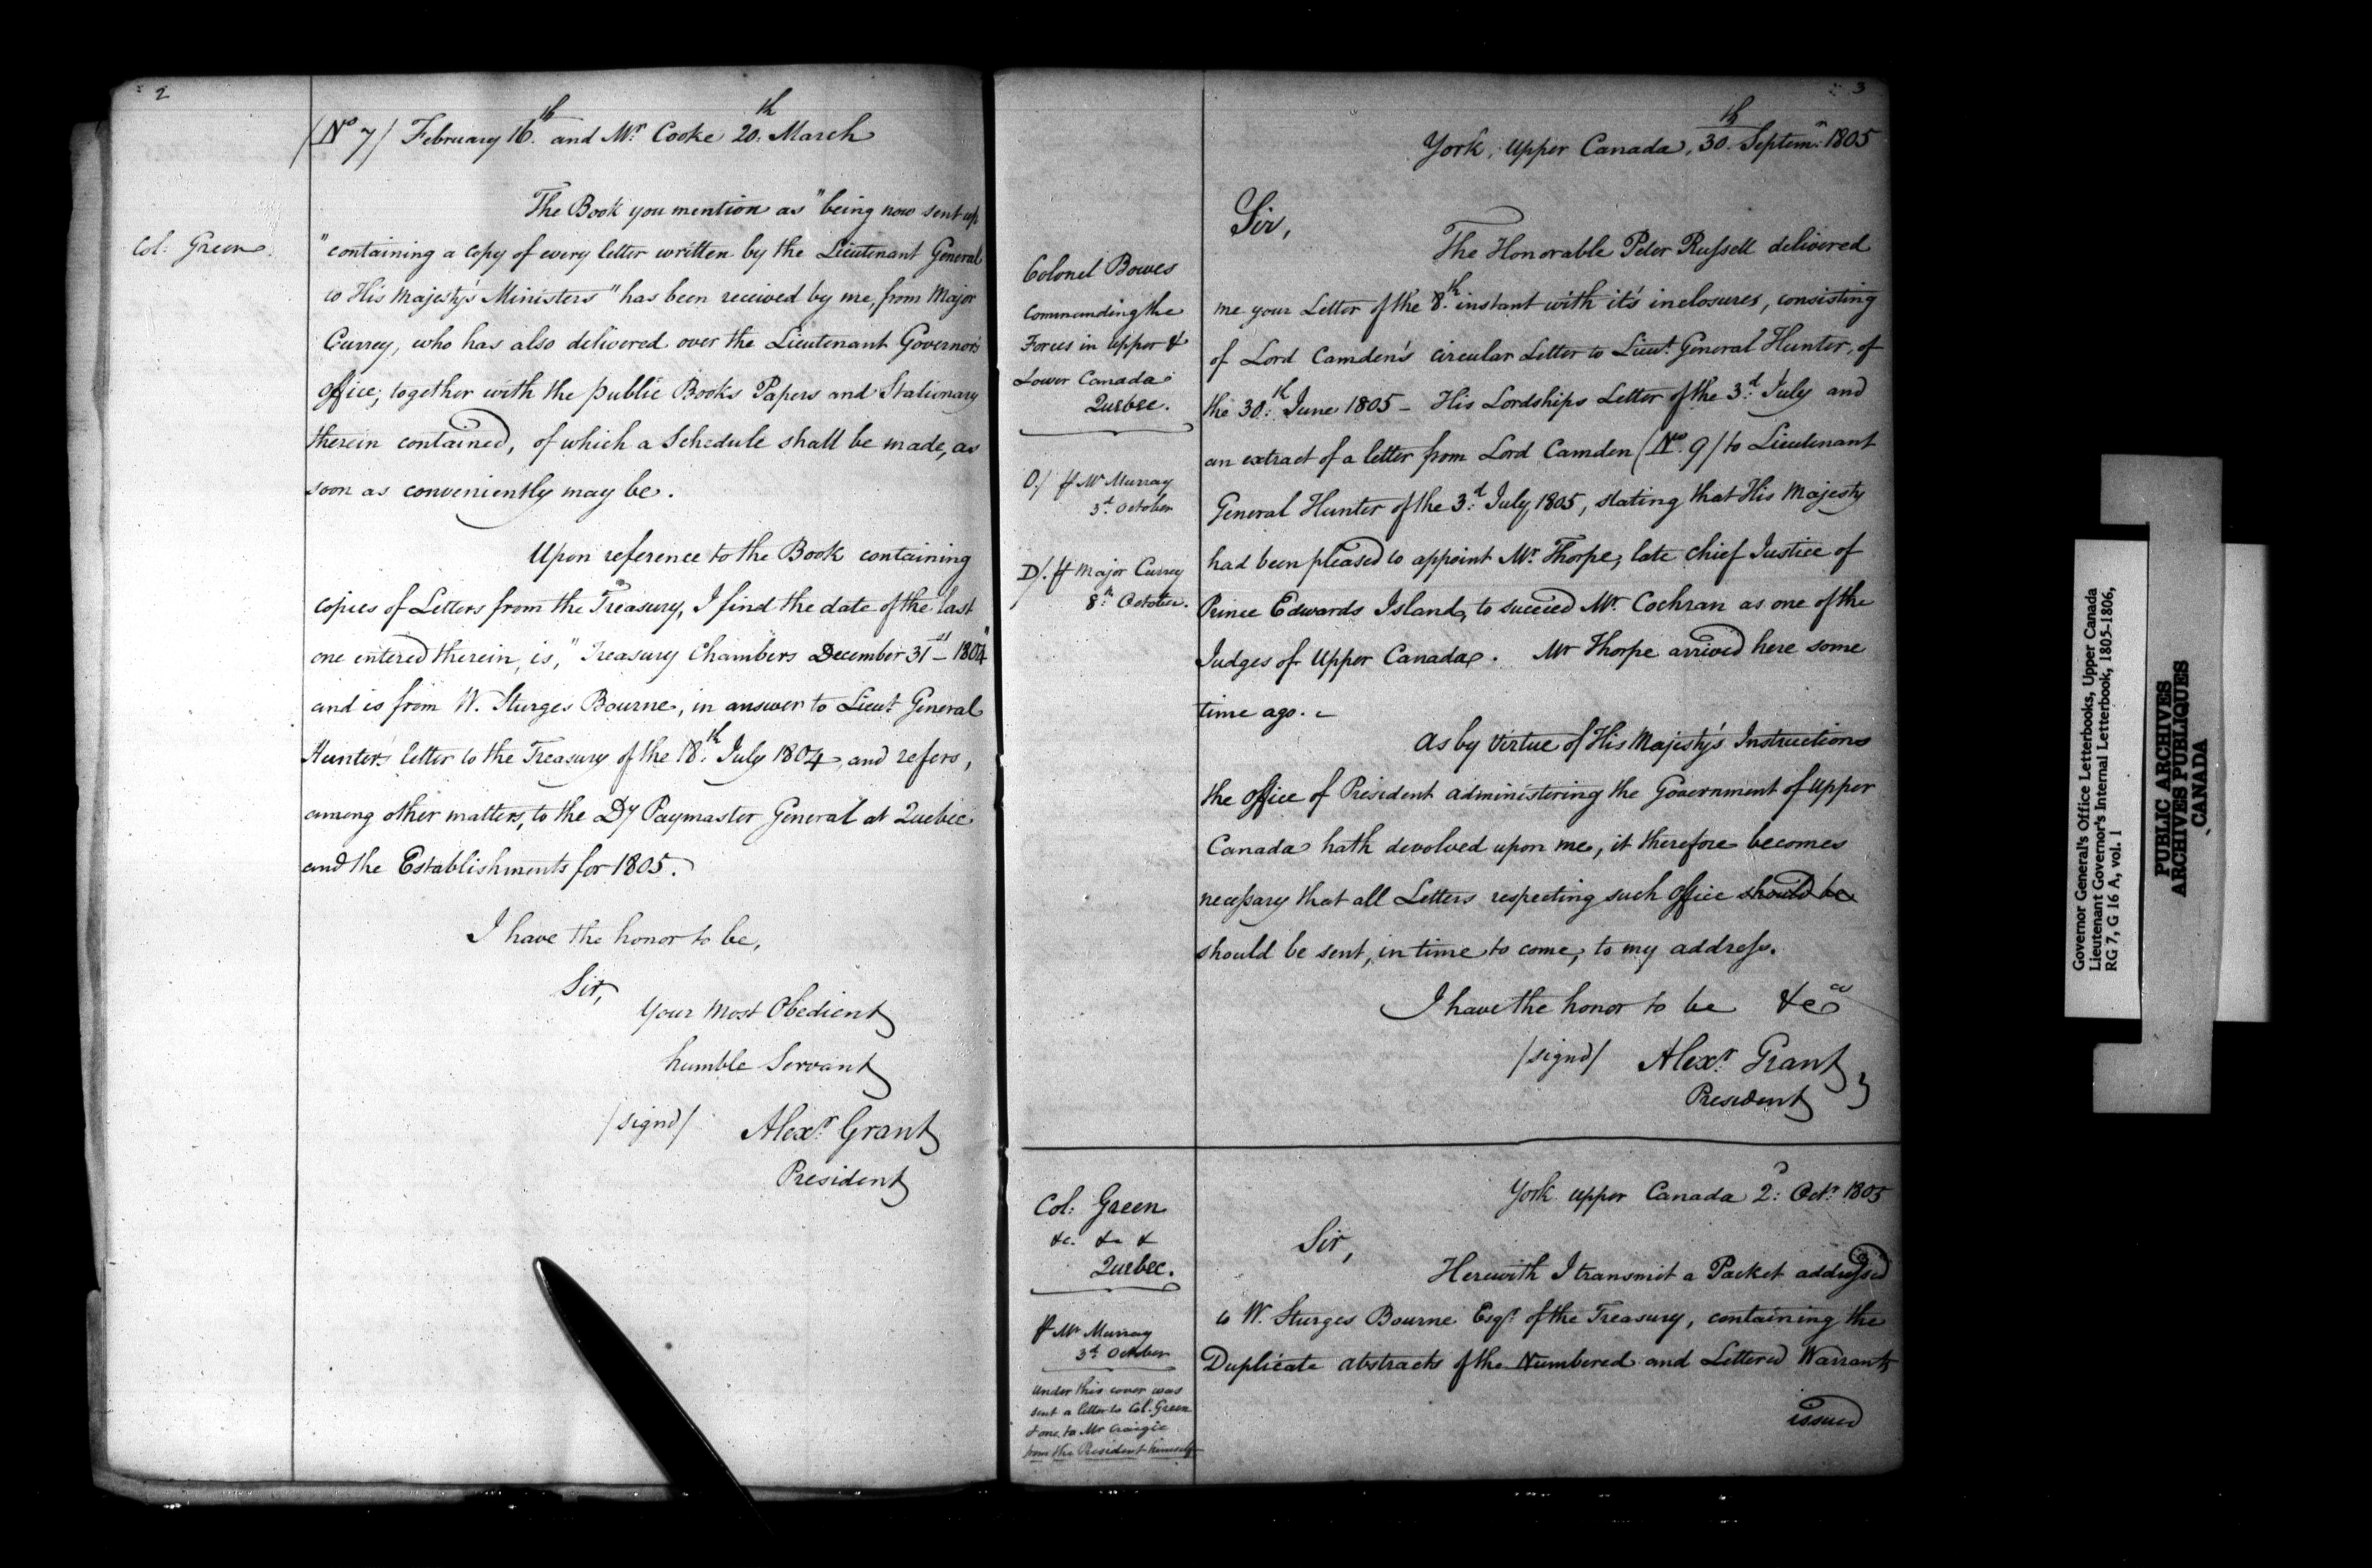 2
(No 7) February 16th and Mr Cooke 20th March
Col: Green
The Book you mention as "being now sent up
"containing a copy of every letter written by the Lieutenant General
to His Majesty's Ministers" has been received by me, from Major
Currey, who has also delivered over the Lieutenant Governor's
Office, together with the public Books Papers and Stationary
therein contained, of which a Schedule shall be made, as
soon as conveniently may be.
Upon reference to the Book containing
copies of Letters from the Treasury, I find the date of the last
one entered therein, is, "Treasury Chambers December 31st 1804"
and is from W. Sturges Bourne, in answer to Lieut General
Hunter's letter to the Treasury of the 18th July 1804, and refers,
among other matters, to the Dy Paymaster General at Quebec
and the Establishments for 1805.
I have the honor to be,
Sir,
Your Most Obedient
humble Servant
/signd/ Alexr Grant
President
3
York, Upper Canada, 30th Septemr 1805
Sir,
Colonel Bowes
Commanding the
Forces in Upper &
Lower Canada
Quebec.
O/ ⅌ Mr Murray
3d October
D/. ⅌ Major Currey
8th October.
The Honorable Peter Russell delivered
me your Letter of the 8th instant with it's inclosures, consisting
of Lord Camden's circular Letter to Lieut General Hunter, of
the 30th June 1805 - His Lordships Letter of the 3d July and
an extract of a letter from Lord Camden (No 9) to Lieutenant
General Hunter of the 3d July 1805, stating that His Majesty
had been pleased to appoint Mr Thorpe, late Chief Justice of
Prince Edwards Island, to succeed Mr Cochran as one of the
Judges of Upper Canada. Mr Thorpe arrived here some
time ago. -
As by Virtue of His Majesty's Instructions
the Office of President administering the Government of Upper
Canada hath devolved upon me, it therefore becomes
necessary that all Letters respecting such Office should be
should be sent, in time to come, to my address.
I have the honor to be &ca
/signd/ Alexr Grant
President
York Upper Canada 2d Octr 1805
Col: Green
&c. &c &
Quebec.
⅌ Mr Murray
3d October
Under this cover was
sent a letter to Col. Green
& one to Mr Craigie
from the President himself
Sir,
Herewith I transmit a Packet addressed
to W. Sturges Bourne Esqr of the Treasury, containing the
Duplicate Abstracts of the Numbered and Lettered Warrants
issued
Governor General's Office Letterbooks, Upper Canada
Lieutenant Governor's Internal Letterbook, 1805-1806,
RG 7, G 16 A, vol. 1
PUBLIC ARCHIVES
ARCHIVES PUBLIQUES
CANADA